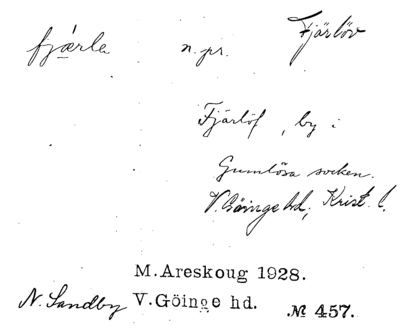 fjǽrla n. pr. Fjärlöv
Fjärlöf, by i
Gumlösa socken.
V. Göinge hd, Krist. l.
M.Areskoug 1928.
N. Sandby V.Göinge hd. № 457.